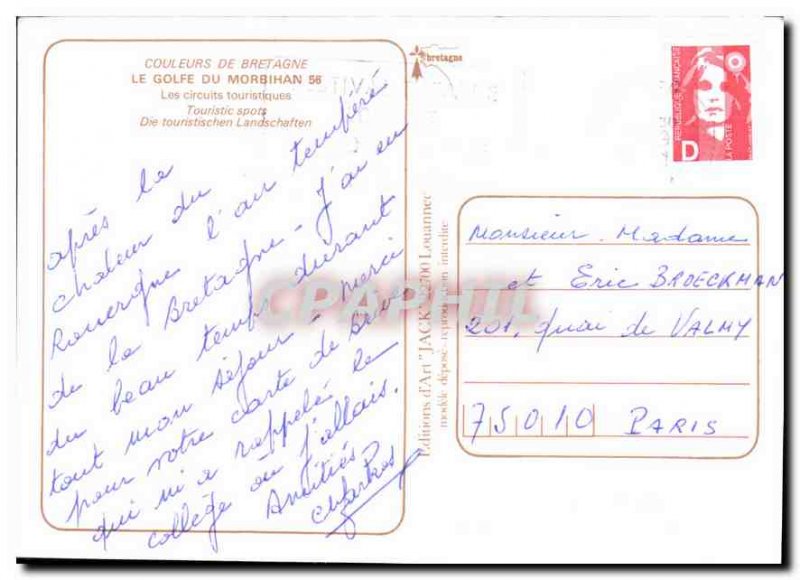 COULEURS DE BRETAGNE
LE GOLFE DU MORBIHAN 56
Les circuits touristiques
Touristic spots
Die touristischen Landschaften
après la
chaleur du
Rouergue l'air tempéré
de la Bretagne - J'ai eu
du beau temps durant
tout mon séjour - merci
pour votre carte de
qui m'a rappelé le
collège où j'allais.
Amitiés
bretagne
REPUBLIQUE FRANÇAISE
D
LA POSTE
Editions d'Art "JACK" 22700 Louannec
modèle déposé - reproduction interdite
Monsieur. Madame
et Eric BROECKMAN
201, Quai de VALMY
75010 PARIS
CPAPHIL